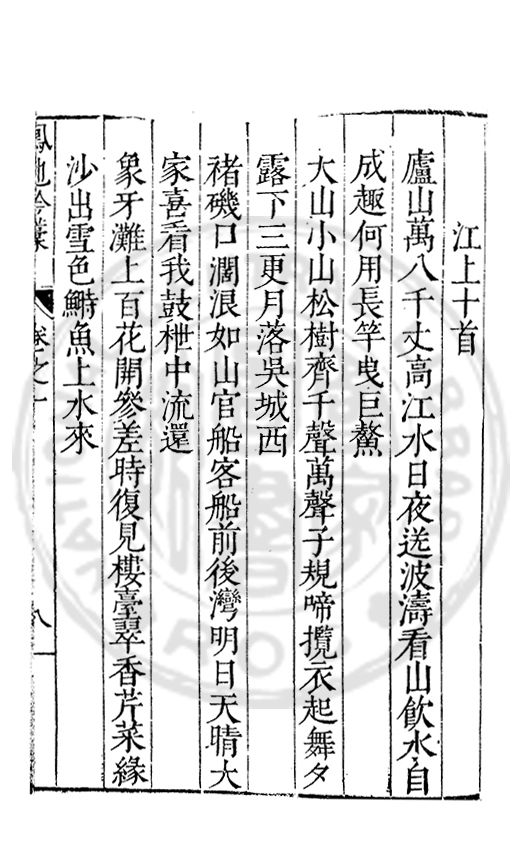 江上十首
廬山萬八千丈高江水日夜送波濤看山飲水自
成趣何用長竿曳巨鰲
大山小山松樹齊千聲萬聲子規啼攬衣起舞夕
露下三更月落吳城西
禇磯口濶浪如山官船客船前後灣明日天晴大
家喜看我鼓枻中流還
象牙灘上百花開參差時復見樓臺翠香芹菜緣
沙出雪色鰣魚上水來
鳳池吟藁
卷之十
八